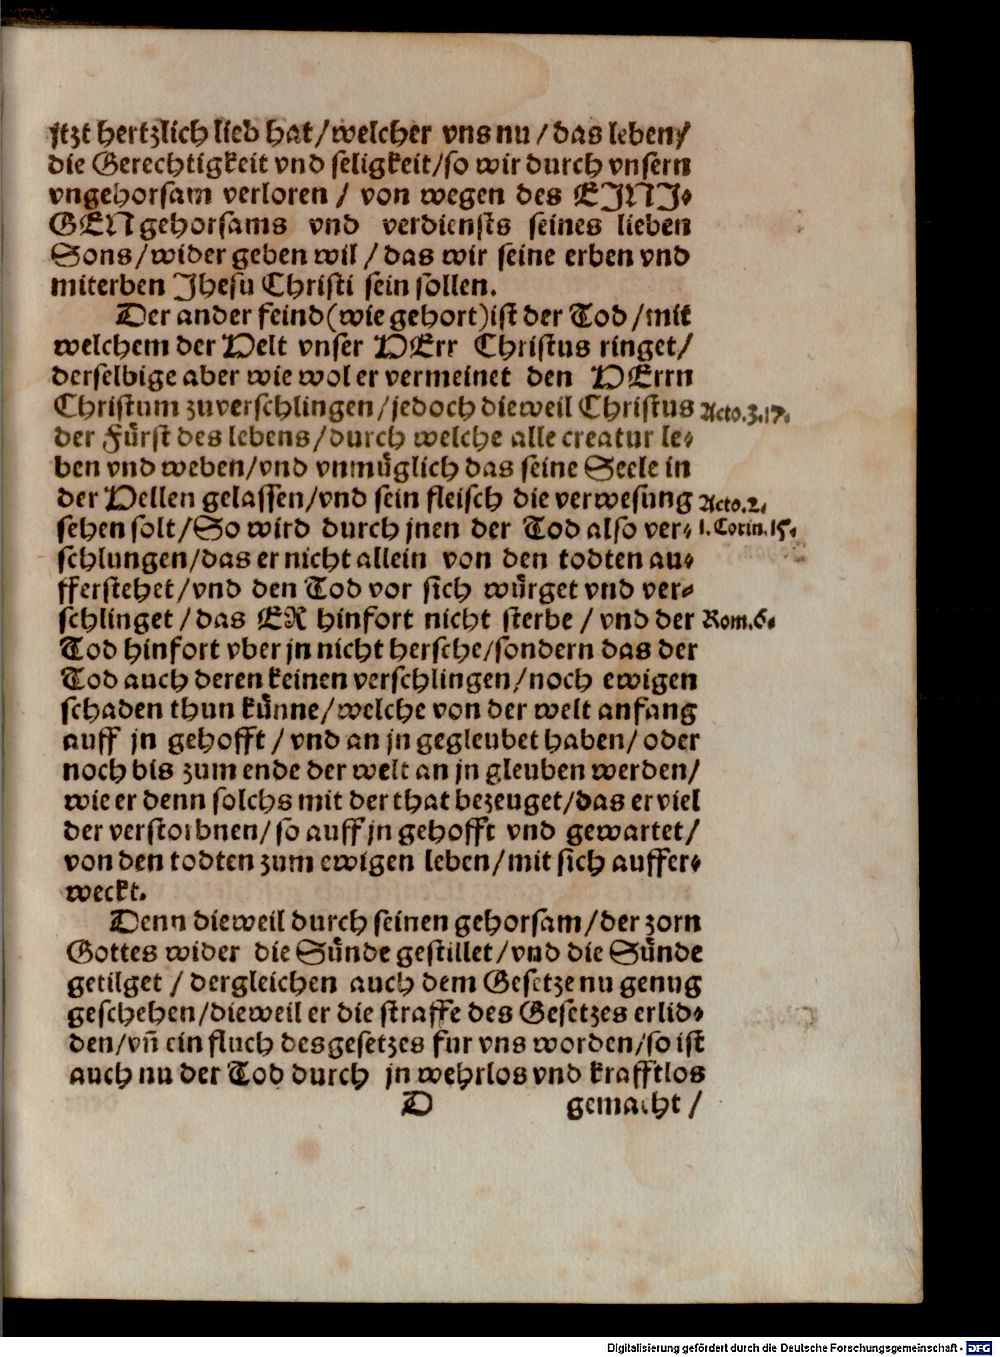 jtzt hertzlich lieb hat/welcher vns nu/das leben/
die Gerechtigkeit vnd seligkeit/so wir durch vnsern
vngehorsam verloren / von wegen des EINI-
GEN gehorsams vnd verdiensts seines lieben
Sons/wider geben wil/das wir seine erben vnd
miterben Jhesu Christi sein sollen.
Der ander feind(wie gehort)ist der Tod/mit
welchem der Helt vnser HErr Christus ringet/
derselbige aber wie wol er vermeinet den HErrn
Christum zuverschlingen/jedoch dieweil Christus Acto.3.17.
der Fürst des lebens/durch welche alle creatur le-
ben vnd weben/vnd vnmüglich das seine Seele in
der Hellen gelassen/vnd sein fleisch die verwesung Acto.2.
sehen solt/So wird durch jnen der Tod also ver- 1.Corin.15.
schlungen/das er nicht allein von den todten au-
fferstehet/vnd den Tod vor sich würget vnd ver-
schlinget/das ER hinfort nicht sterbe/vnd der Rom.6.
Tod hinfort vber jn nicht hersche/sondern das der
Tod auch deren keinen verschlingen/noch ewigen
schaden thun künne/welche von der welt anfang
auff jn gehofft/vnd an jn gegleubet haben/oder
noch bis zum ende der welt an jn gleuben werden/
wie er denn solchs mit der that bezeuget/das er viel
der verstorbnen/so auff jn gehofft vnd gewartet/
von den todten zum ewigen leben/mit sich auffer-
weckt.
Denn dieweil durch seinen gehorsam/der zorn
Gottes wider die Sünde gestillet/vnd die Sünde
getilget/dergleichen auch dem Gesetze nu genug
geschehen/dieweil er die straffe des Gesetzes erlid-
den/vn̄ ein fluch des gesetzes fur vns worden/so ist
auch nu der Tod durch jn wehrlos vnd krafftlos
D gemacht/
Digitalisierung gefördert durch die Deutsche Forschungsgemeinschaft - DFG